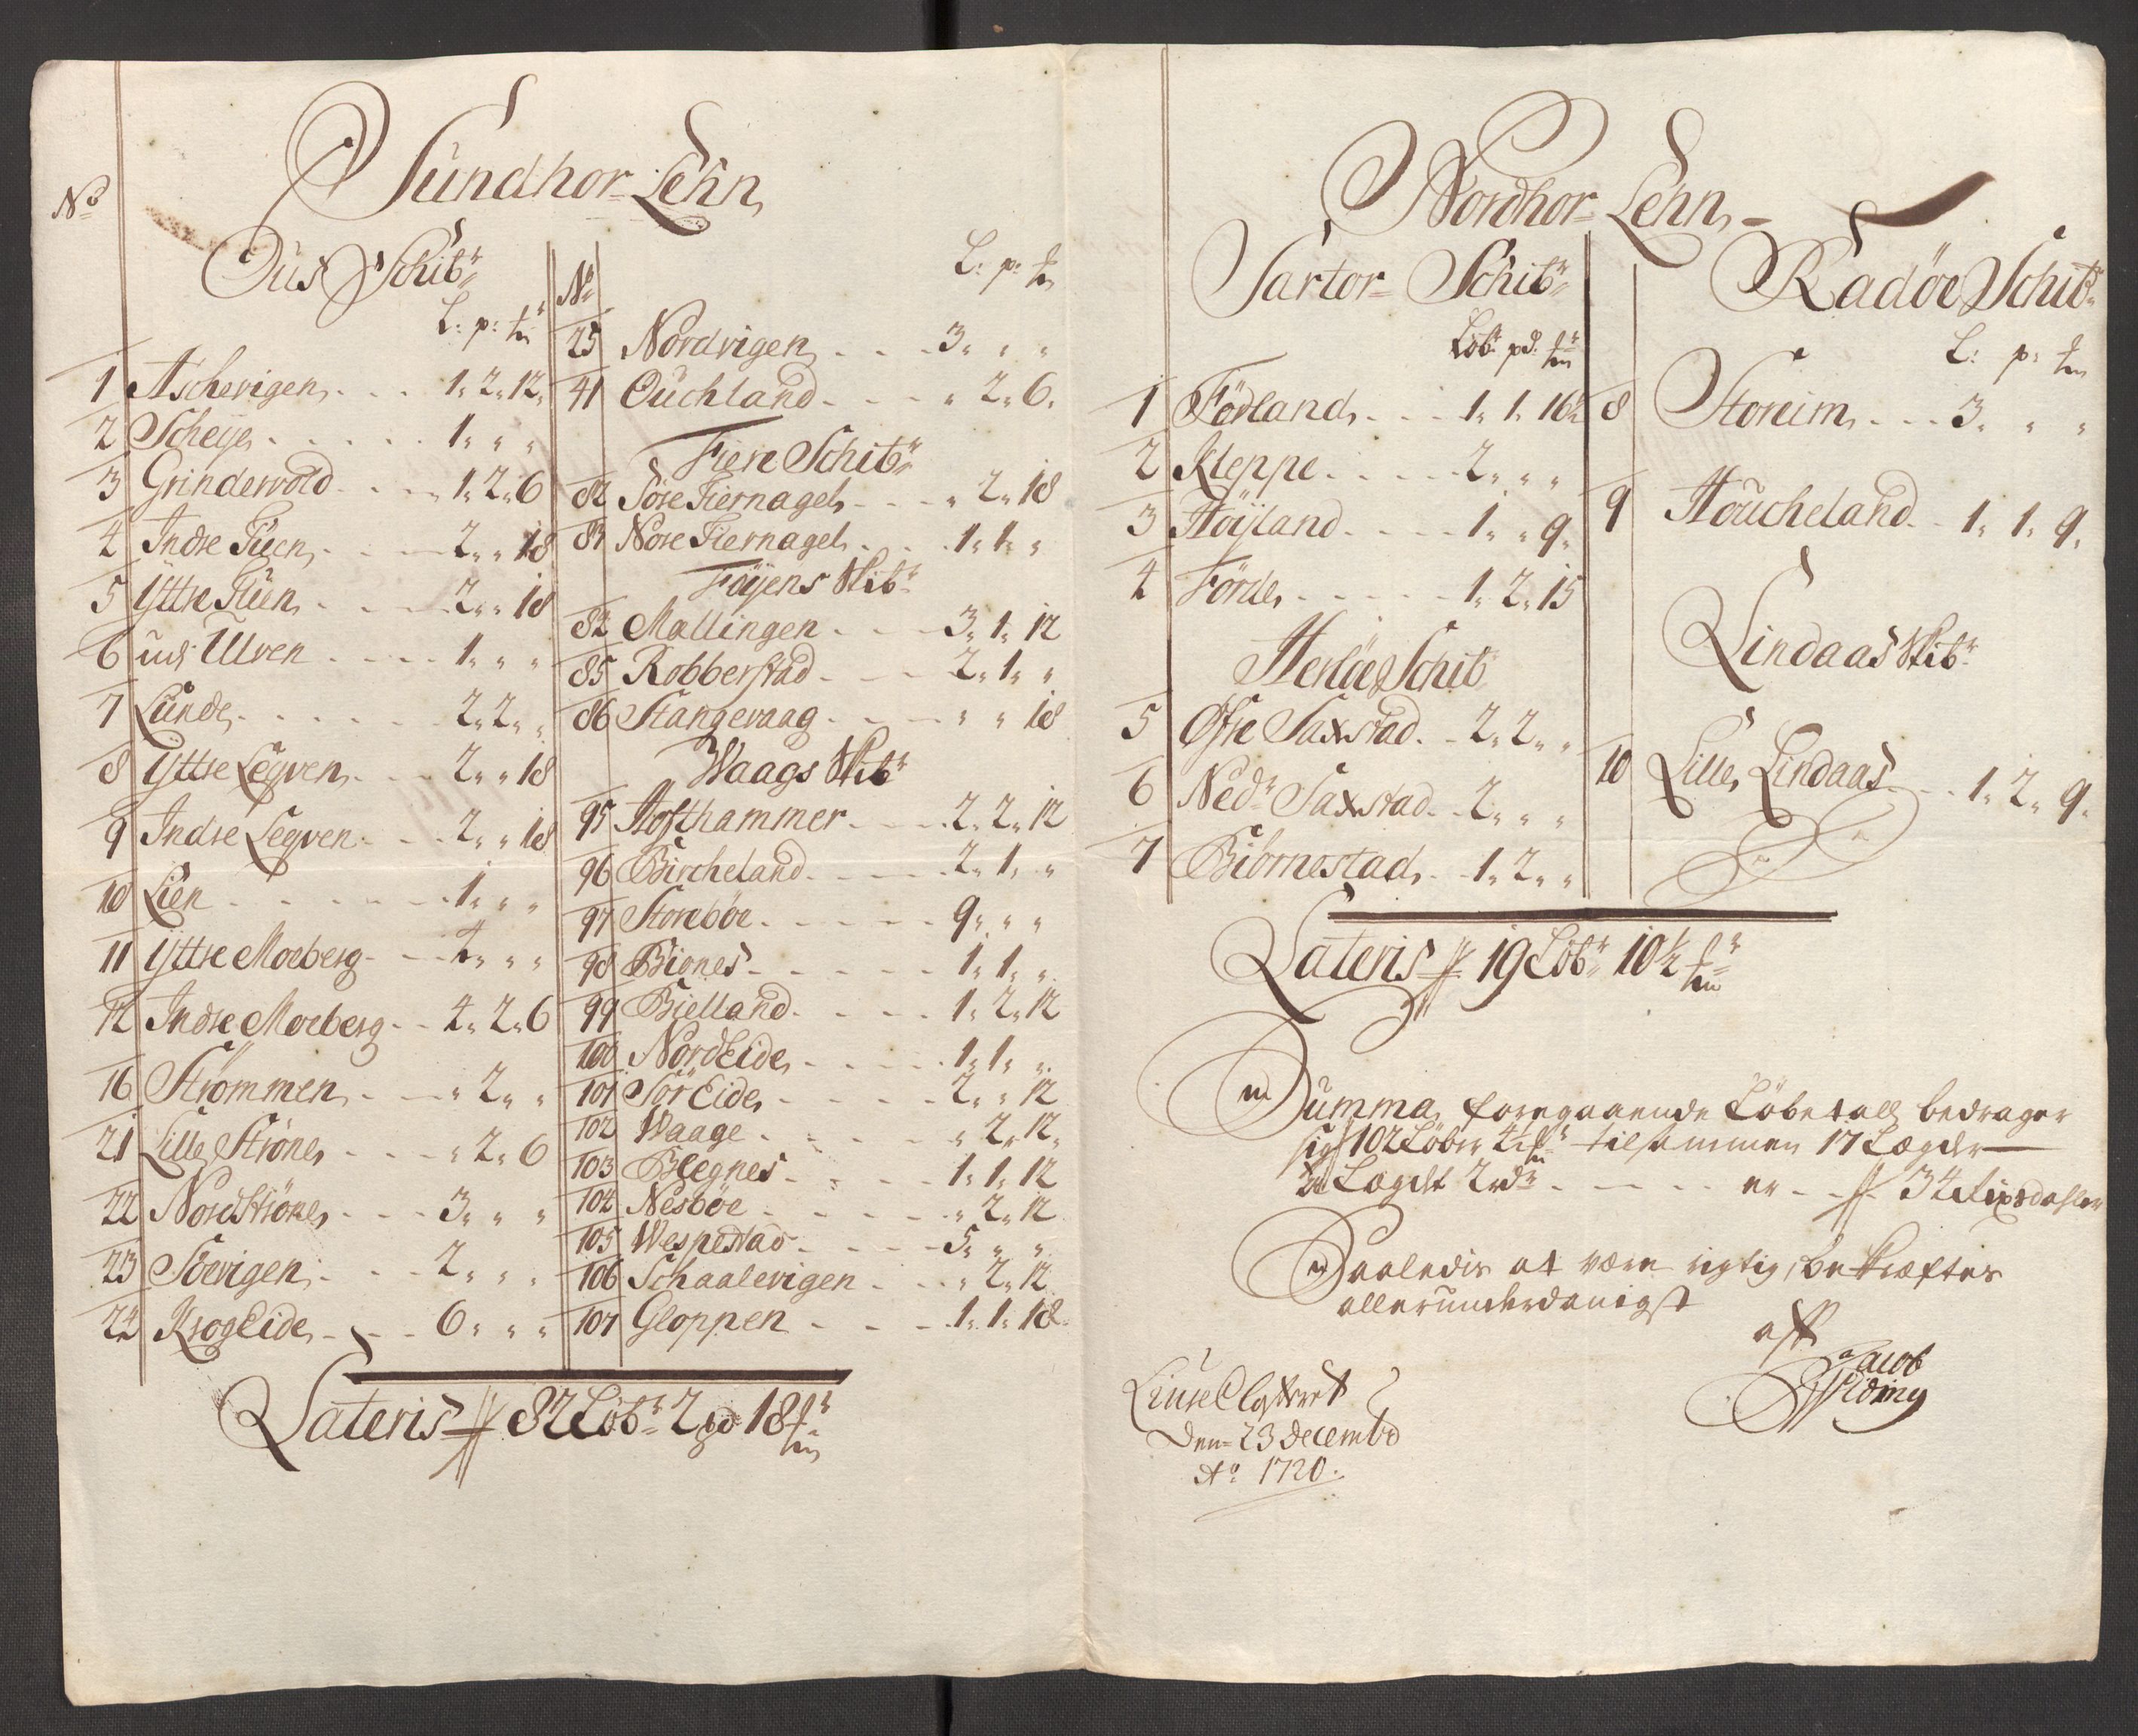 Sundhor Lehn
No
Ous Schibr
L: p: m
1 Aschevigen - - - 1„ 2„ 12„
2 Scheije - - - - - 1„ „ „
3 Grindevold - - - 1„ 2„ 6
4 Indre Tüen - - - 2„ „ 18
5 Yttre Tüen - - - 2„ „ 18
6 Ulven - - - - 1„ „ „
7 Lunde - - - - - 2„ 2„ „
8 Yttre Legven - - - 2„ „ 18
9 Indre Legven - - - 2„ „ 18
10 Lien - - - - - - 1„ „ „
11 Yttre Moeberg - - 4„ „ „
12 Indre Moeberg - - 4„ 2„ 6
16 Strömmen - - - „ 2„ „
21 Lille Ströne - - - „ 2„ 6
22 Nordströne - - - 3„ „ „
23 Söevigen - - - 2„ „ „
24 KrogEide - - - 6„ „ „
No
L: p: m
25 Nordvigen - - - 3„ „ „
41 Ouchland - - - „ 2„ 6„
Fiere Schibr
82 Söre Fiernagel - - - „ 2„ 18
83 Nore Fiernagel - - - 1„ 1„ „
Föyens Skibr
82 Mallingen - - - 3„ 1„ 12
85 Robberstad - - - 2„ 1„ „
86 Stangevaag - - - „ „ 18
Waags Skibr
95 Hofthammer - - - 2„ 2„ 12
96 Bircheland - - - 2„ 1„ „
97 Storebøe - - - - 9„ „ „
98 Biones - - - - - 1„ 1„ „
99 Bielland - - - - 1„ 2„ 12
100 NordEide - - - - 1„ 1„ „
101 SörEide - - - - 2„ „ 12
102 Waage - - - - „ 2„ 12„
103 Blegnes - - - - 1„ 1„ 12
104 Nesböe - - - - „ 2„ 12
105 Wespestad - - - - 5„ „ „
106 Schaalevigen - - - „ 2„ 12
107 Gloppen - - - - 1„ 1„ 18„
Lateris 82 Løbr 2 pd 18 m
Nordhor Lehn
Sartor Schibr
Løbr pd: m
1 Födland - - - 1„ 1„ 16½
2 Kleppe - - - - 2„ „ „
3 Höijland - - - - 1„ „ 9„
4 Förde - - - - - 1„ 2„ 15
Herlöe Schib
5 Øfre Saxstad - - 2„ 2„ „
6 Nedr Saxstad - - 2„ „ „
7 Biörnestad - - 1„ 2„ „
Radöe Schibr
L: p: m
8 Storeim - - - 3„ „ „
9 Houcheland - - 1„ 1„ 9„
Lindaas Skibr
10 Lille Lindaas - - 1„ 2„ 9„
Lateris 19 Løbr 10½ m
Summa foregaaende Løbetall bedrager
sig 102 Løber tilsammen 17 Lægder
a Lægdt 2 rdr - - - - er - - 34 Rixdahler
Saaledis at være rigtig, bekræfter
allerunderdanigst
Jacob
Widing
Liuse Closteret
den 23 decembr
Ao 1720.